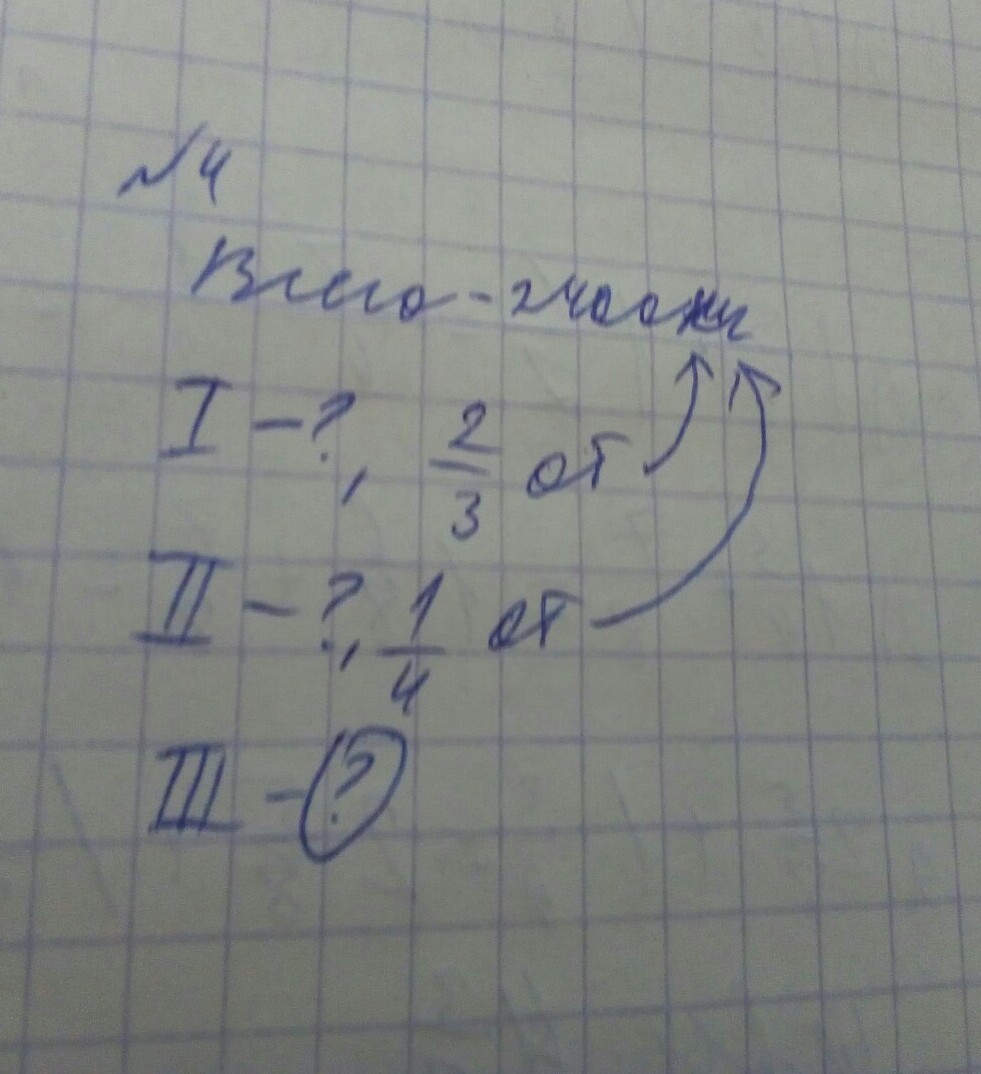 №4
Всего - 2400 км
I - ?, 2/3 от
II - ?, 1/4 от
III - ?